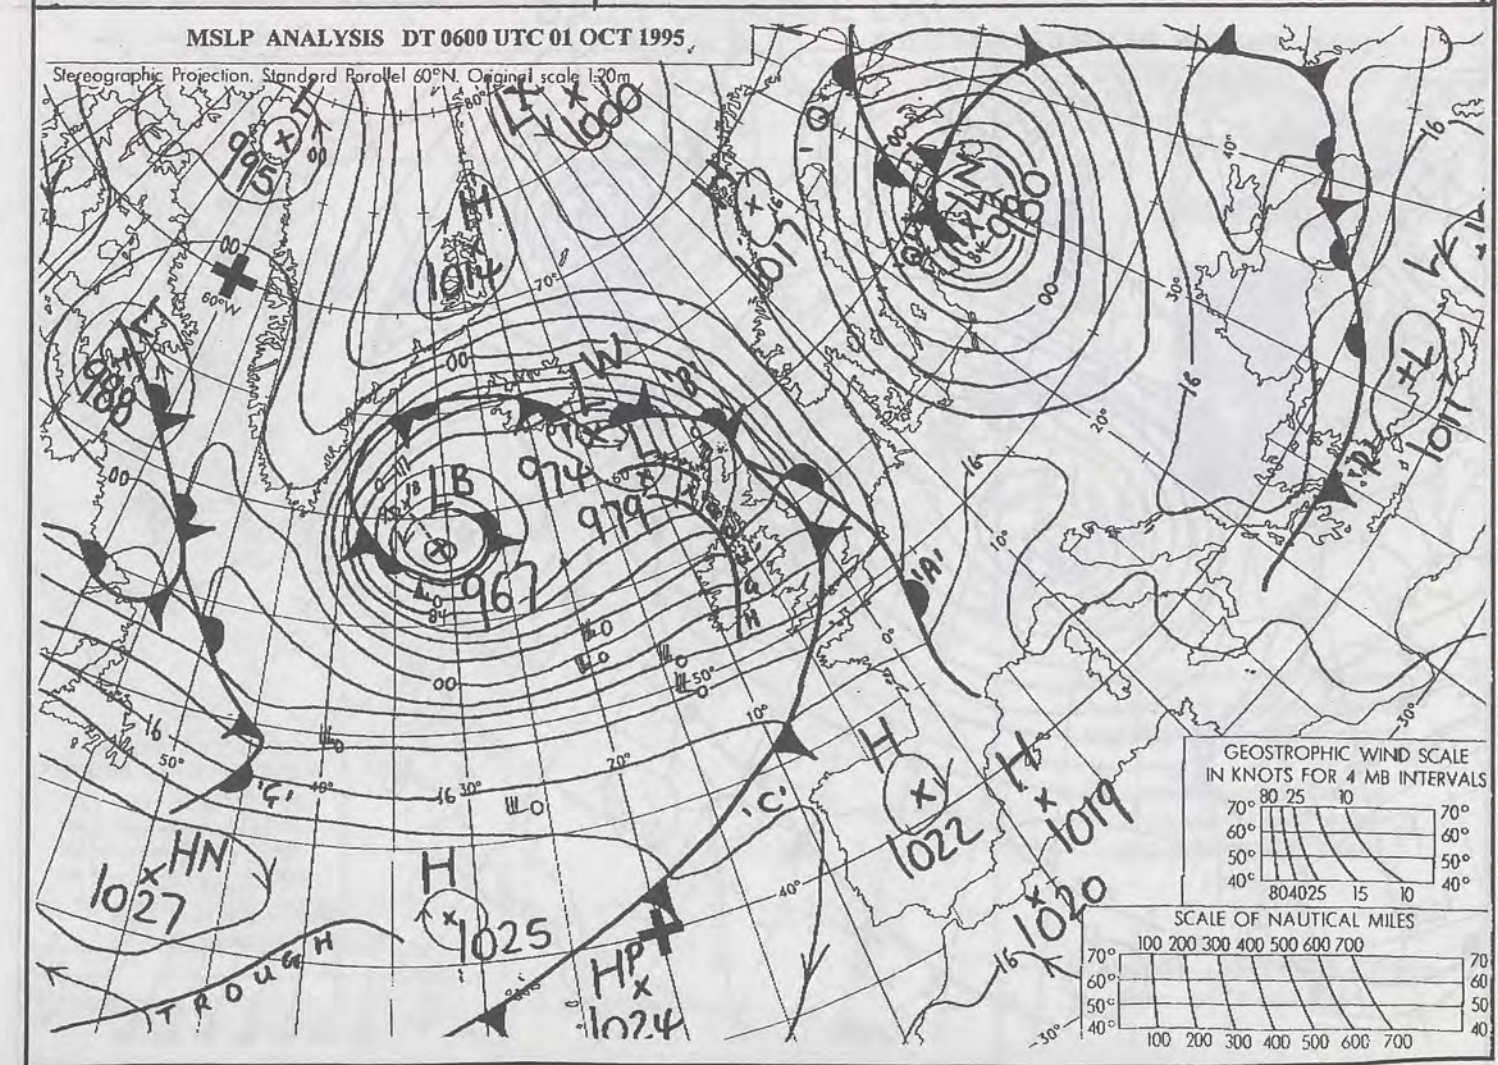 MSLP ANALYSIS DT 0600 UTC 01 OCT 1995
Stereographic Projection. Standard Parallel 60°N. Original scale 1:20m
80°
L
995
00
LX
1000
H
1014
00
60°W
70°
1017
LN
980
00
40°
30°
16
16
20°
16
10°
L
1011
988
00
00
LW
'B'
974
979
LB
967
84
00
50°
'A'
0°
10°
20°
30°
16
40°
50°
16
'G'
'C'
HN
1027
H
1025
HP
1024
H
1022
H
1019
1020
40°
16
30°
30°
TROUGH
GEOSTROPHIC WIND SCALE
IN KNOTS FOR 4 MB INTERVALS
80 25 10
70° 70°
60° 60°
50° 50°
40° 40°
80 40 25 15 10
SCALE OF NAUTICAL MILES
100 200 300 400 500 600 700
70° 70
60° 60
50° 50
40° 40
100 200 300 400 500 600 700